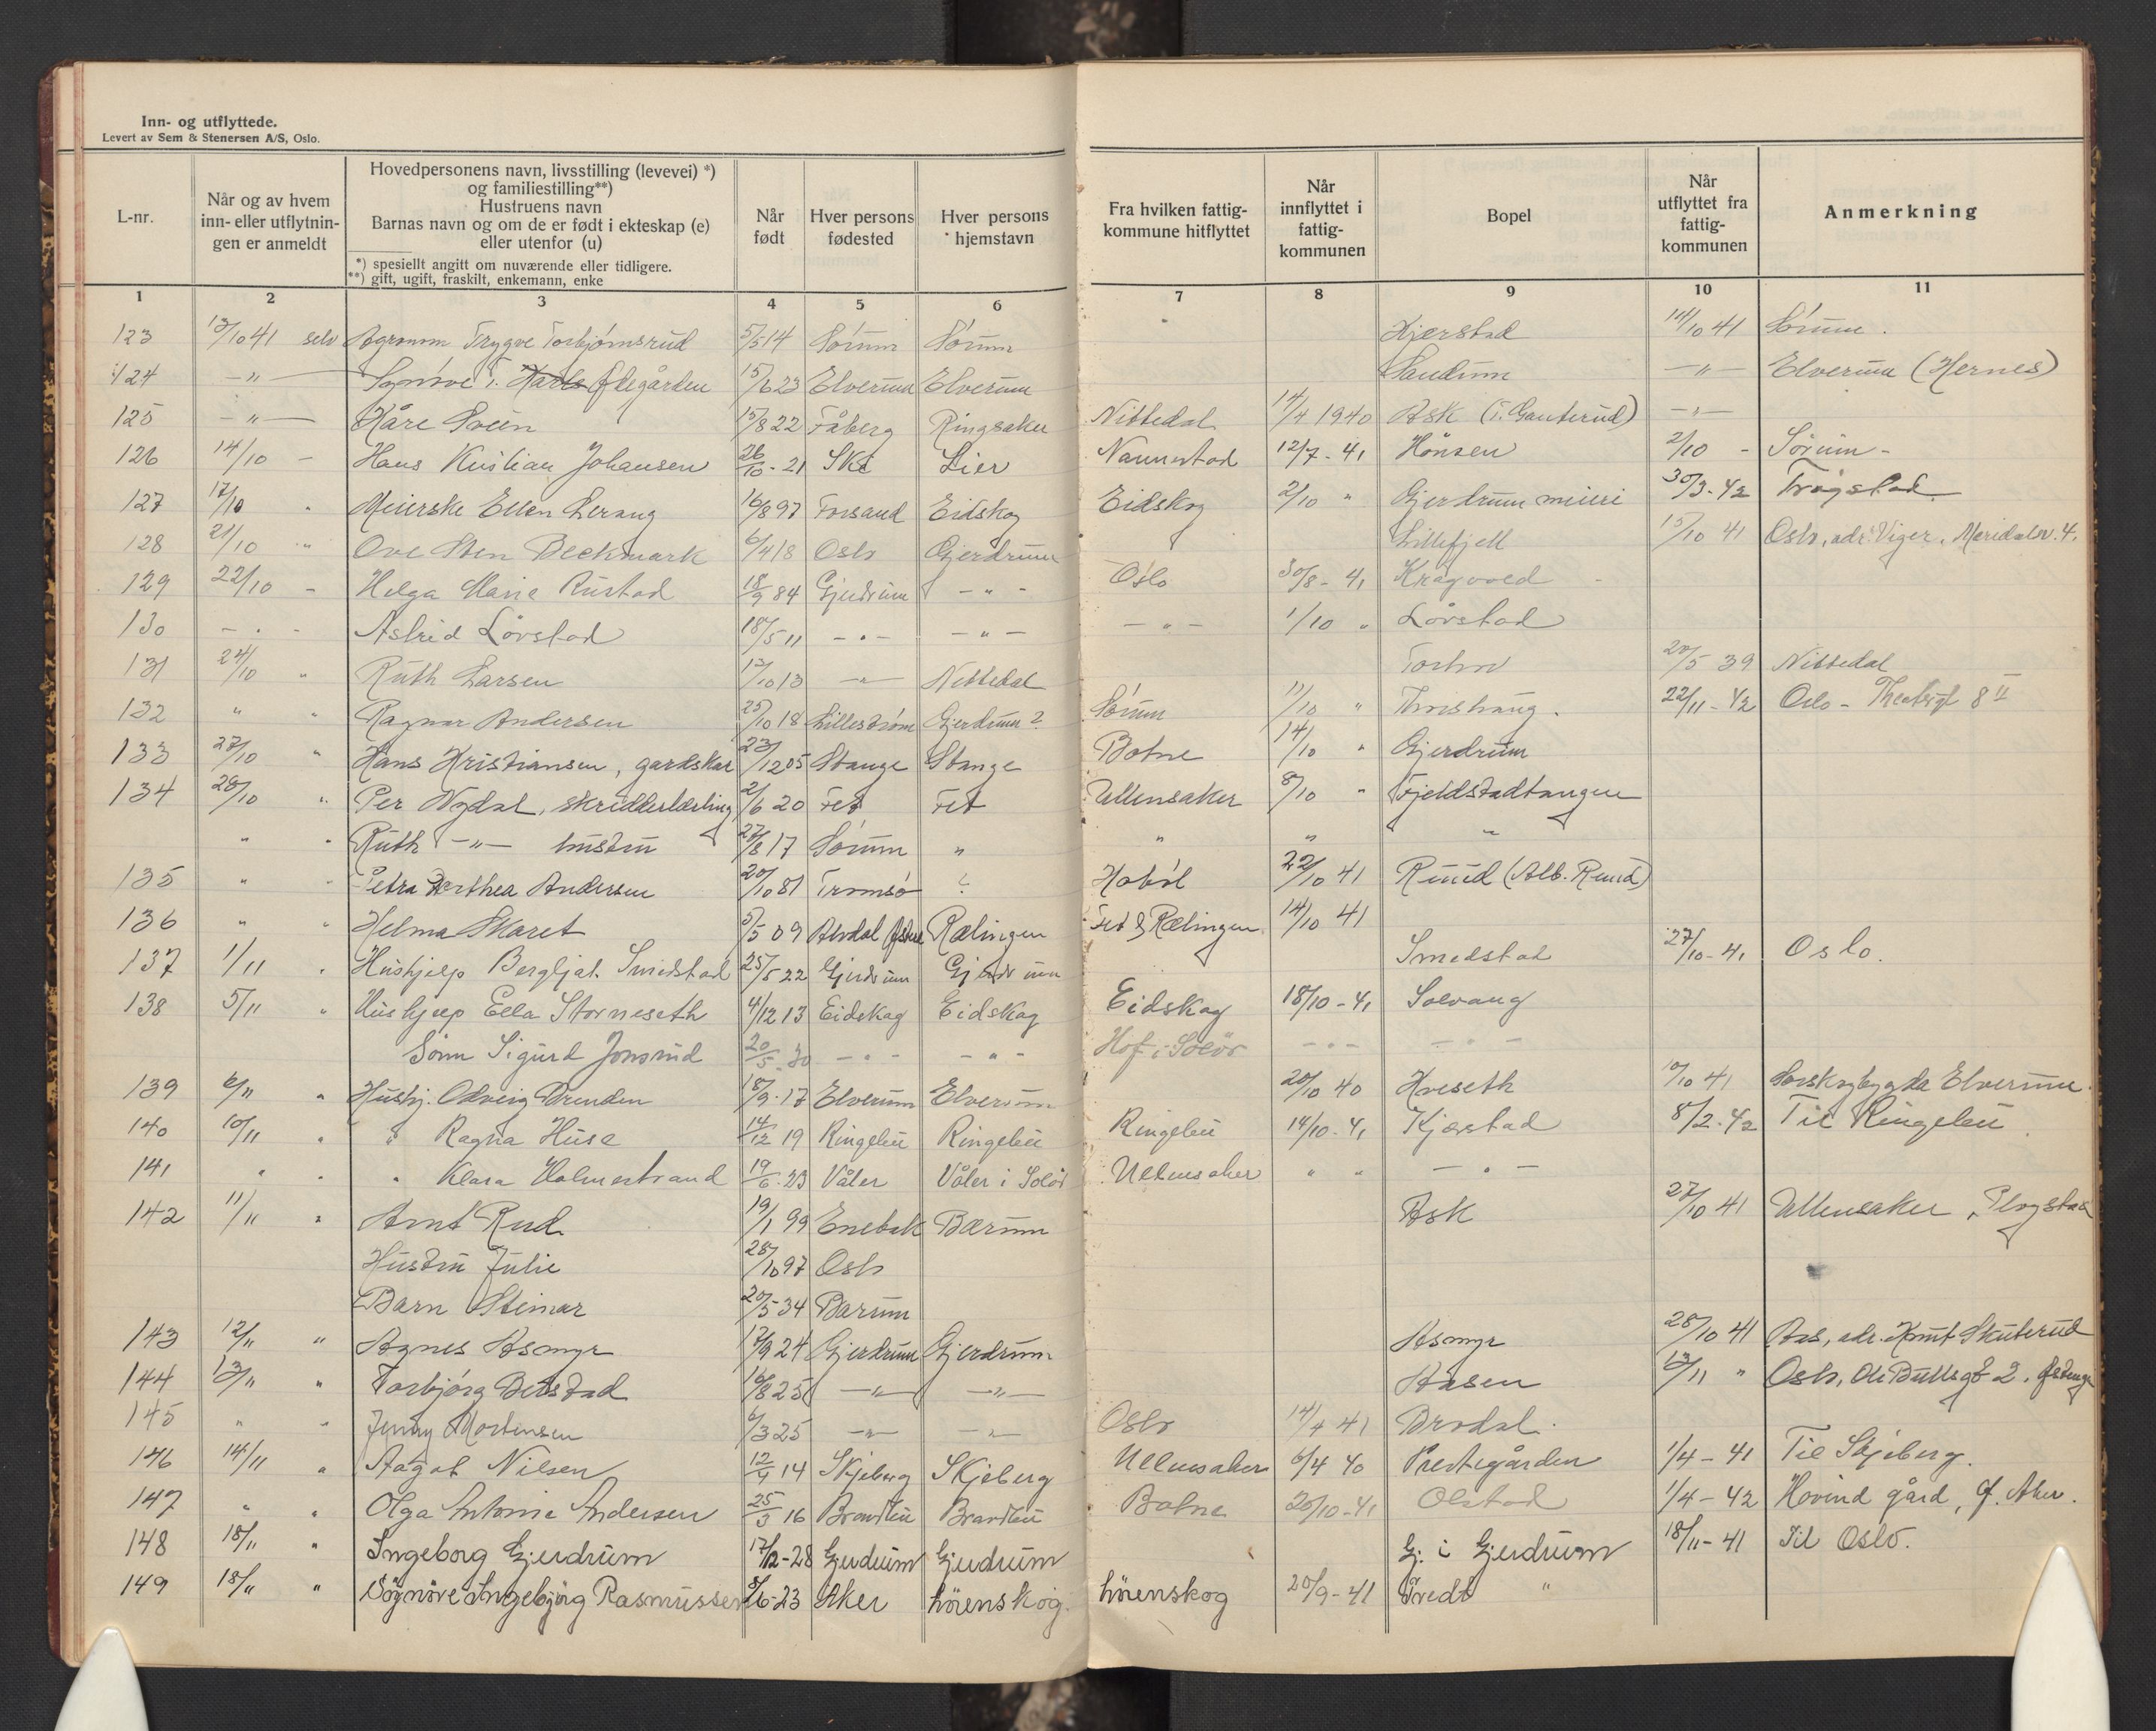 Inn- og utflyttede.
Levert av Sem & Stenersen A/S, Oslo.
L-nr.
Når og av hvem inn- eller utflytnin-gen er anmeldt
Hovedpersonens navn, livsstilling (levevei) *) og familiestilling**)
Hustruens navn
Barnas navn og om de er født i ekteskap (e) eller utenfor (u)
*) spesiellt angitt om nuværende eller tidligere.
**) gift, ugift, fraskilt, enkemann, enke
Når født
Hver persons fødested
Hver persons hjemstavn
Fra hvilken fattig-kommune hitflyttet
Når innflyttet i fattig-kommunen
Bopel
Når utflyttet fra fattig-kommunen
Anmerkning
1 2 3 4 5 6 7 8 9 10 11
123 13/10 41 selv Agronom Trygve Torbjørnsrud 5/5 14 Sørum Sørum Kjærstad 14/10 41 Sørum.
124 -"- Synnøve T. 15/6 23 Elverum Elverum Sandum -"- Elverum (Hernes)
125 -"- Kåre Sveen 15/8 22 Fåberg Ringsaker Nittedal 14/4 1940 Ask (T. Ganterud) -"-
126 14/10 - Hans Kristian Johansen 26/10 - 21 Ski Lier Nannestad 12/7 - 41 Hønsen 2/10 - Sørum -
127 17/10 " Meierske Ellen Lerang 16/8 97 Forsand Eidskog Eidskog 2/10 " Gjerdrum meieri 30/3 - 42 Trøgstad
128 21/10 " Ove Sten Beckmark 6/4 18 Oslo Gjerdrum Lillefjell 15/10 41 Oslo, adr. Viger, Maridalsv. 4.
129 22/10 - Helga Marie Rustad 18/9 84 Gjerdrum - " - Oslo 30/8 - 41 Kragvold
130 - " - Astrid Lövstad 18/5 11 - " - - " - - " - 1/10 " Lövstad
131 24/10 " Ruth Larsen 12/10 13 -"- Nittedal 20/5 39 Nittedal
132 " " Ragnar Andersen 25/10 18 Lillestrøm Gjerdrum? Sørum 11/10 " 22/11 - 42 Oslo - 8 II
133 27/10 " Hans Kristiansen, gardskar 23/12 05 Stange Stange Botne 14/10 " Gjerdrum
134 28/10 " Per Nydal, skredderlærling 2/6 20 Fet Fet Ullensaker 8/10 " Fjeldstadtangen
" " Ruth -"- hustru 27/8 17 Sørum " " " "
135 " " Petra Dorthea Andersen 20/10 81 Tromsø ? Hobøl 22/10 41 Ruud (Alb. Ruud)
136 " " Helma Skaret 5/5 09 Alvdal Rælingen Fet & Rælingen 14/10 41
137 1/11 " Hushjelp Bergljot Smedstad 25/5 22 Gjerdrum Gjerdrum Smedstad 27/10 - 41 Oslo.
138 5/11 " Hushjelp Ella Storneseth 4/12 13 Eidskog Eidskog Eidskog 18/10 - 41 Solvang
Sönn Sigurd Jonsrud 20/5 30 - " - - " - Hof i Solör - " - - " -
139 6/11 " Hushj. Odveig Brenden 18/9 - 17 Elverum Elverum 20/10 40 Hveseth 10/10 41 Sørskogbygda Elverum.
140 10/11 " " Ragna Huse 14/12 19 Ringebu Ringebu Ringebu 14/10 - 41 Kjærstad 8/2 - 42 Til Ringebu
141 " " " Klara Holmestrand 19/6 - 23 Våler Våler i Solör Ullensaker " " - " -
142 11/11 " Arnt Rud 19/1 99 Enebak Bærum Ask 27/10 41 Ullensaker,
Hustru Julie 28/10 97 Oslo
Barn Steinar 20/5 34 Bærum
143 12/11 " Agnes Asmyr 17/9 24 Gjerdrum Gjerdrum Asmyr 28/10 41 Ås, adr. Knut Skuterud
144 13/11 " Torbjørg Betstad 16/8 25 -"- -"- Åsen 13/11 " Oslo, Ole Bullsgt 2.
145 " " Jenny Mortensen 6/3 25 -"- -"- Oslo 14/4 41 Brodal.
146 14/11 " Aagot Nilsen 12/4 14 Skjeberg Skjeberg Ullensaker 6/4 40 Prestegården 1/4 - 41 Til Skjeberg.
147 " " Olga Antonie Andersen 25/3 16 Brandbu Brandbu Botne 20/10 - 41 Olstad 1/4 - 42 Hovind gård, Ø. Aker.
148 18/11 " Ingeborg Gjerdrum 17/12 - 28 Gjerdrum Gjerdrum Gj. i Gjerdrum 18/11 - 41 Til Oslo.
149 18/11 " Synnöve Ingebjörg Rasmussen 8/6 - 23 Aker Lörenskog. Lörenskog 20/9 - 41 Tvedt "